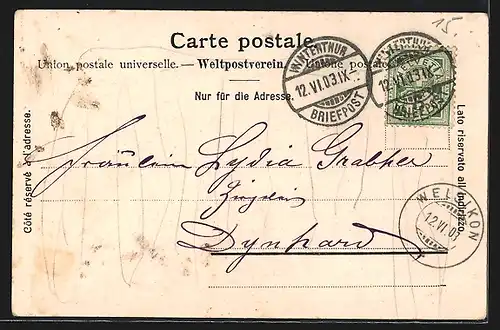 15.
Carte postale.
Union postale universelle. — Weltpostverein. — Unione postale
Nur für die Adresse.
Côté réservé à l'adresse.
Lato riservato all'indirizzo.
WINTERTHUR
12.VI.03.IX—
BRIEFPOST
WINTERTHUR
12.VI.03.IX—
BRIEFPOST
Fräulein Lydia Grabher
Dynhard
12.VI.03